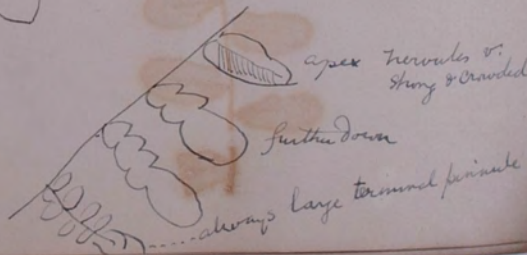 apex nervules v.
strong & crowded
further down
always large terminal pinnule